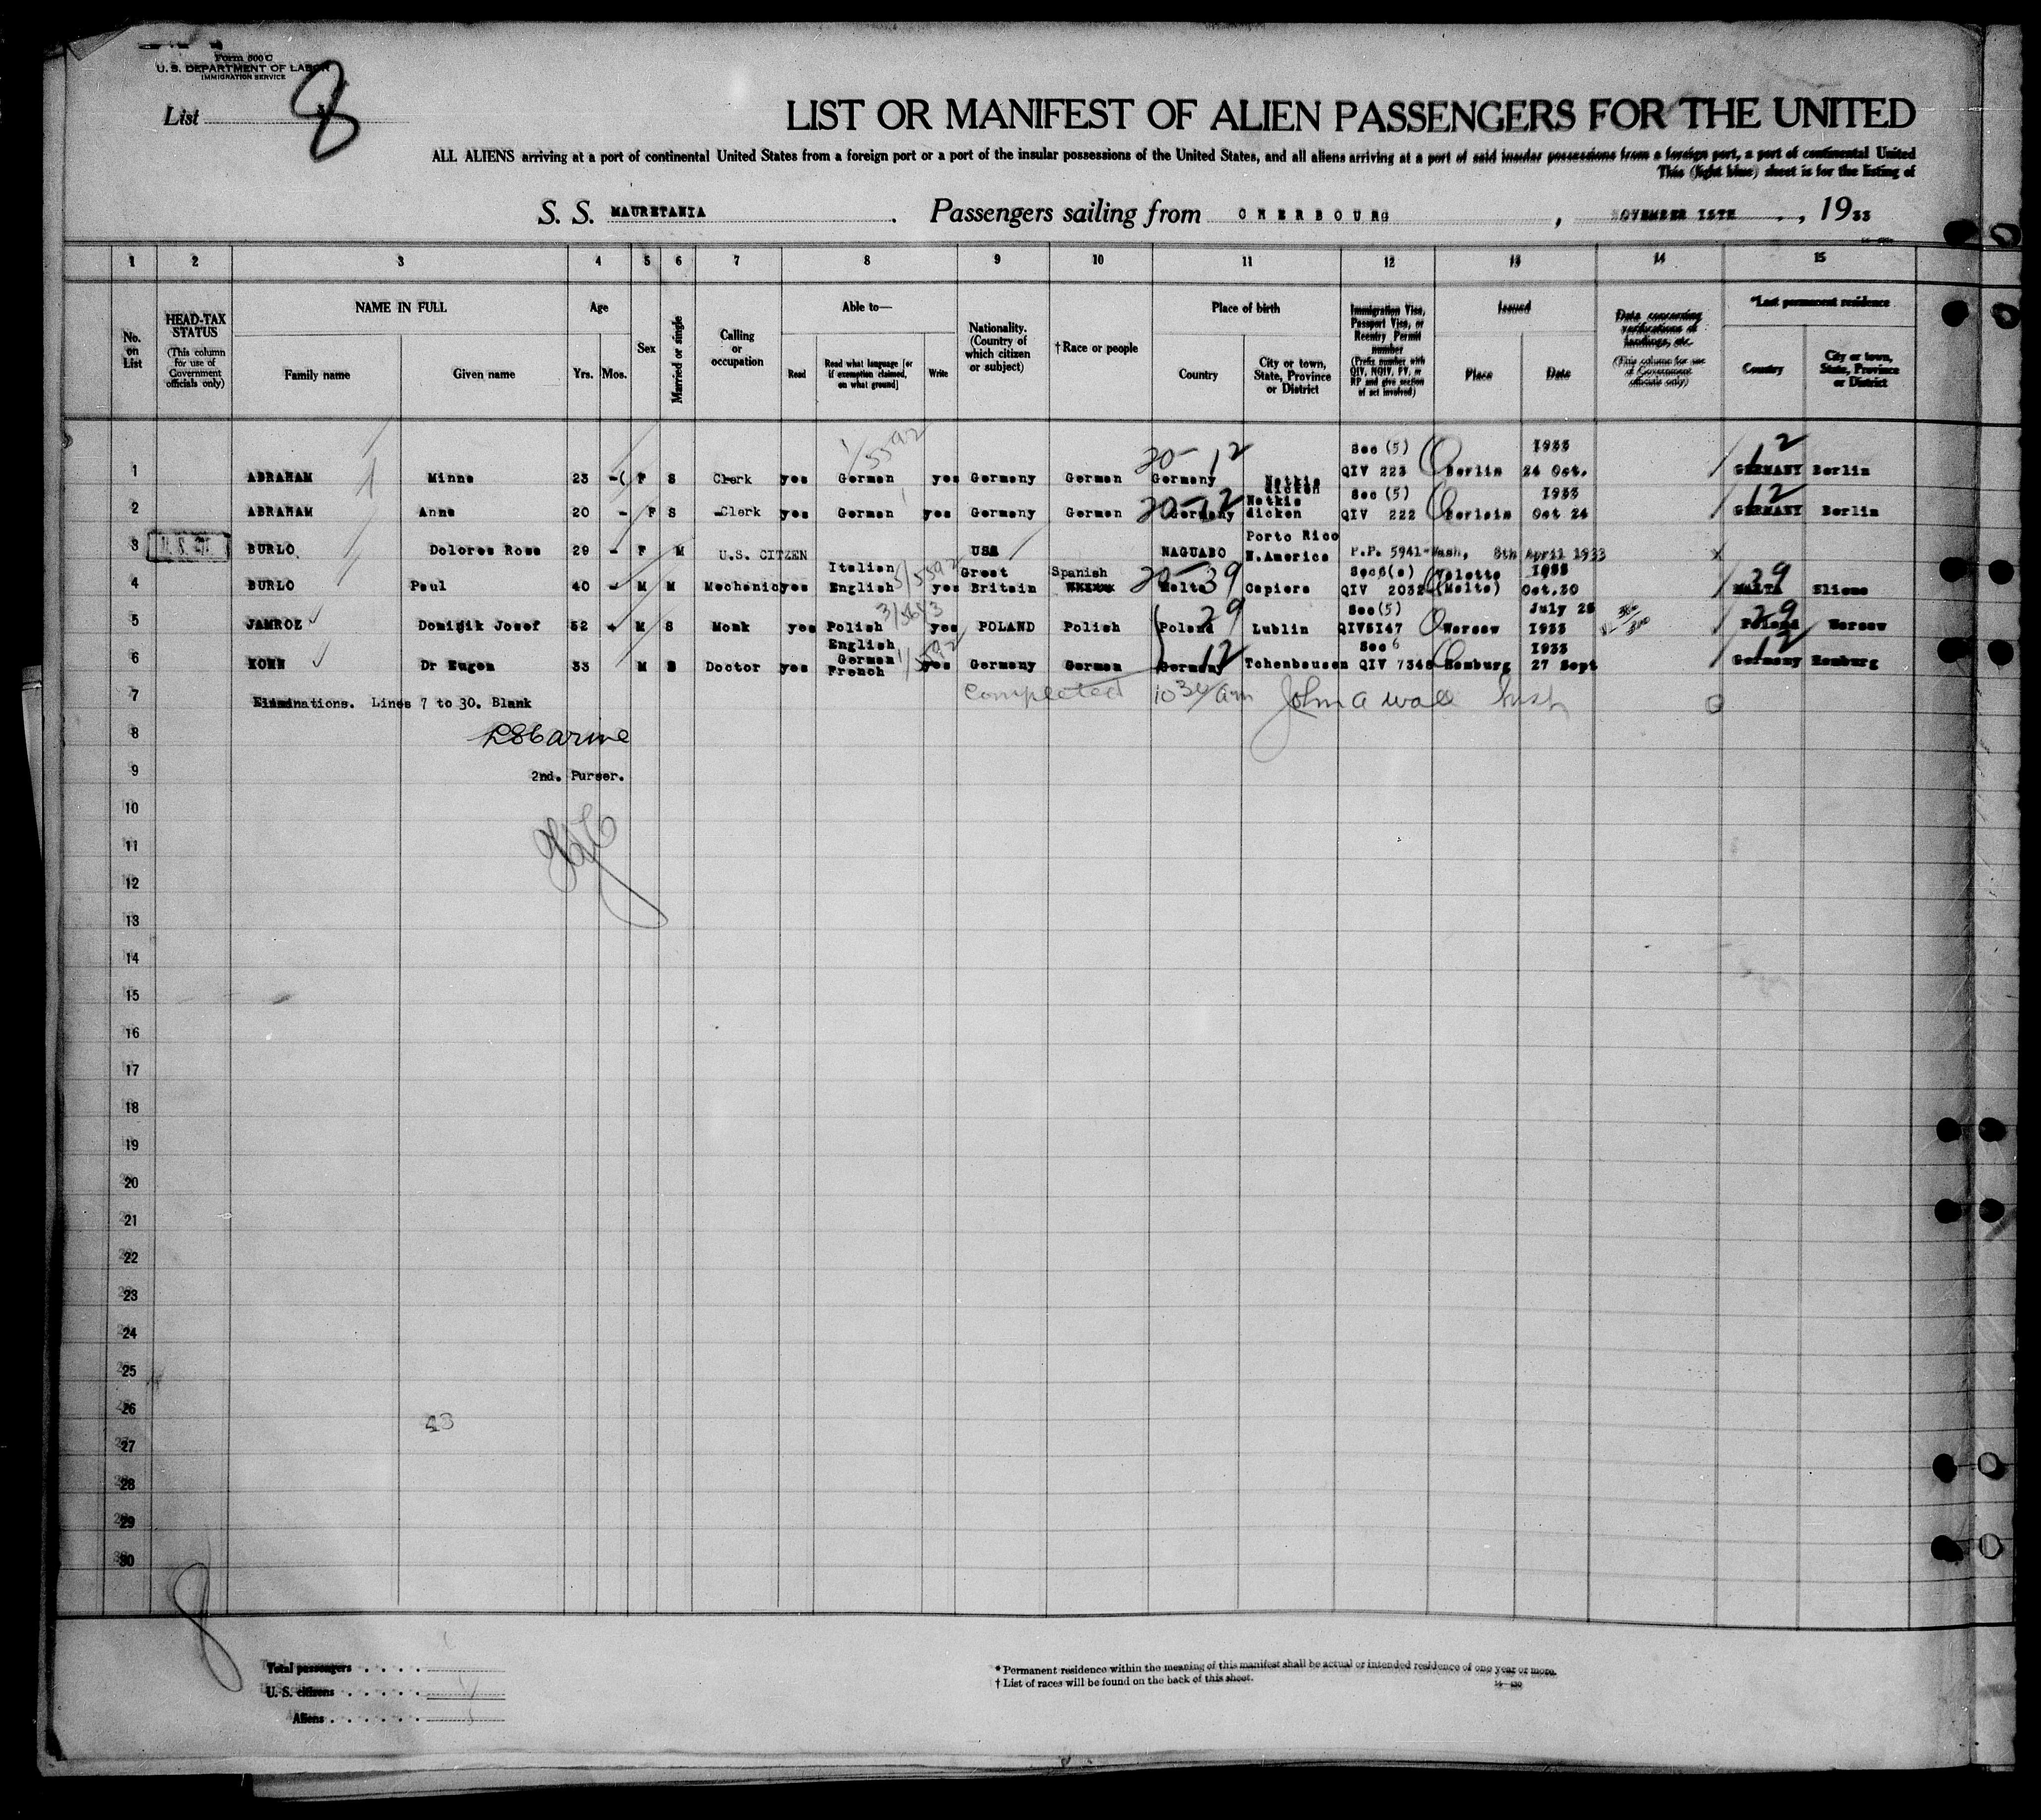 Form 500 C
U. S. DEPARTMENT OF LABOR
IMMIGRATION SERVICE
List 8
LIST OR MANIFEST OF ALIEN PASSENGERS FOR THE UNITED
ALL ALIENS arriving at a port of continental United States from a foreign port or a port of the insular possessions of the United States, and all aliens arriving at a port of said insular possessions from a foreign port, a port of continental United
This (light blue) sheet is for the listing of
S. S. MAURETANIA . Passengers sailing from CHERBOURG , NOVEMBER 15TH , 1933
1 2 3 4 5 6 7 8 9 10 11 12 13 14 15
No. on List
HEAD-TAX STATUS (This column for use of Government officials only)
NAME IN FULL
Family name Given name
Age
Yrs. Mos.
Sex
Married or single
Calling or occupation
Able to—
Read Read what language [or if exemption claimed, on what ground] Write
Nationality. (Country of which citizen or subject)
†Race or people
Place of birth
Country City or town, State, Province or District
Immigration Visa, Passport Visa, or Reentry Permit number (Prefix number with QIV, NQIV, PV, or RP and give section of act involved)
Issued
Place Date
Data concerning verifications of landings, etc. (This column for use of Government officials only)
*Last permanent residence
Country City or town, State, Province or District
1 ABRAHAM Minna 23 - F S Clerk yes German yes Germany German 20-12 Germany Sec (5) QIV 223 Berlin 24 Oct. 1933 12 GERMANY Berlin
2 ABRAHAM Anna 20 - F S Clerk yes German yes Germany German 20-12 Germany Sec (5) QIV 222 Berlein Oct 24 1933 12 GERMANY Berlin
3 BURLO Dolores Rosa 29 - F M U.S. CITZEN USA NAGUABO Porto Rico N.America P.P. 5941-Wash, 8th April 1933 x
4 BURLO Paul 40 - M M Mechanic yes Italian English 3/5592 yes Great Britain Spanish 20-39 Malta Capiera QIV 2032 Valetta (Malta) 1933 Oct.30 39 MALTA Sliema
5 JAMROZ Dominik Josef 52 M S Monk yes Polish yes POLAND Polish 29 Poland Lublin Sec(5) Warsaw July 28 1933 29 Poland Warsaw
6 KOHN Dr Eugen 33 M S Doctor yes English German French yes Germany German 12 Germany Sec 6 QIV 7348 Hamburg 1933 27 Sept 12 Germany Hamburg
7 Eliminations. Lines 7 to 30. Blank Completed 10 30/am John A Wall Insp
8
2nd. Purser.
9
10
11
12
13
14
15
16
17
18
19
20
21
22
23
24
25
26 43
27
28
29
30
8
Total passengers
U. S. citizens
Aliens
* Permanent residence within the meaning of this manifest shall be actual or intended residence of one year or more.
† List of races will be found on the back of this sheet.